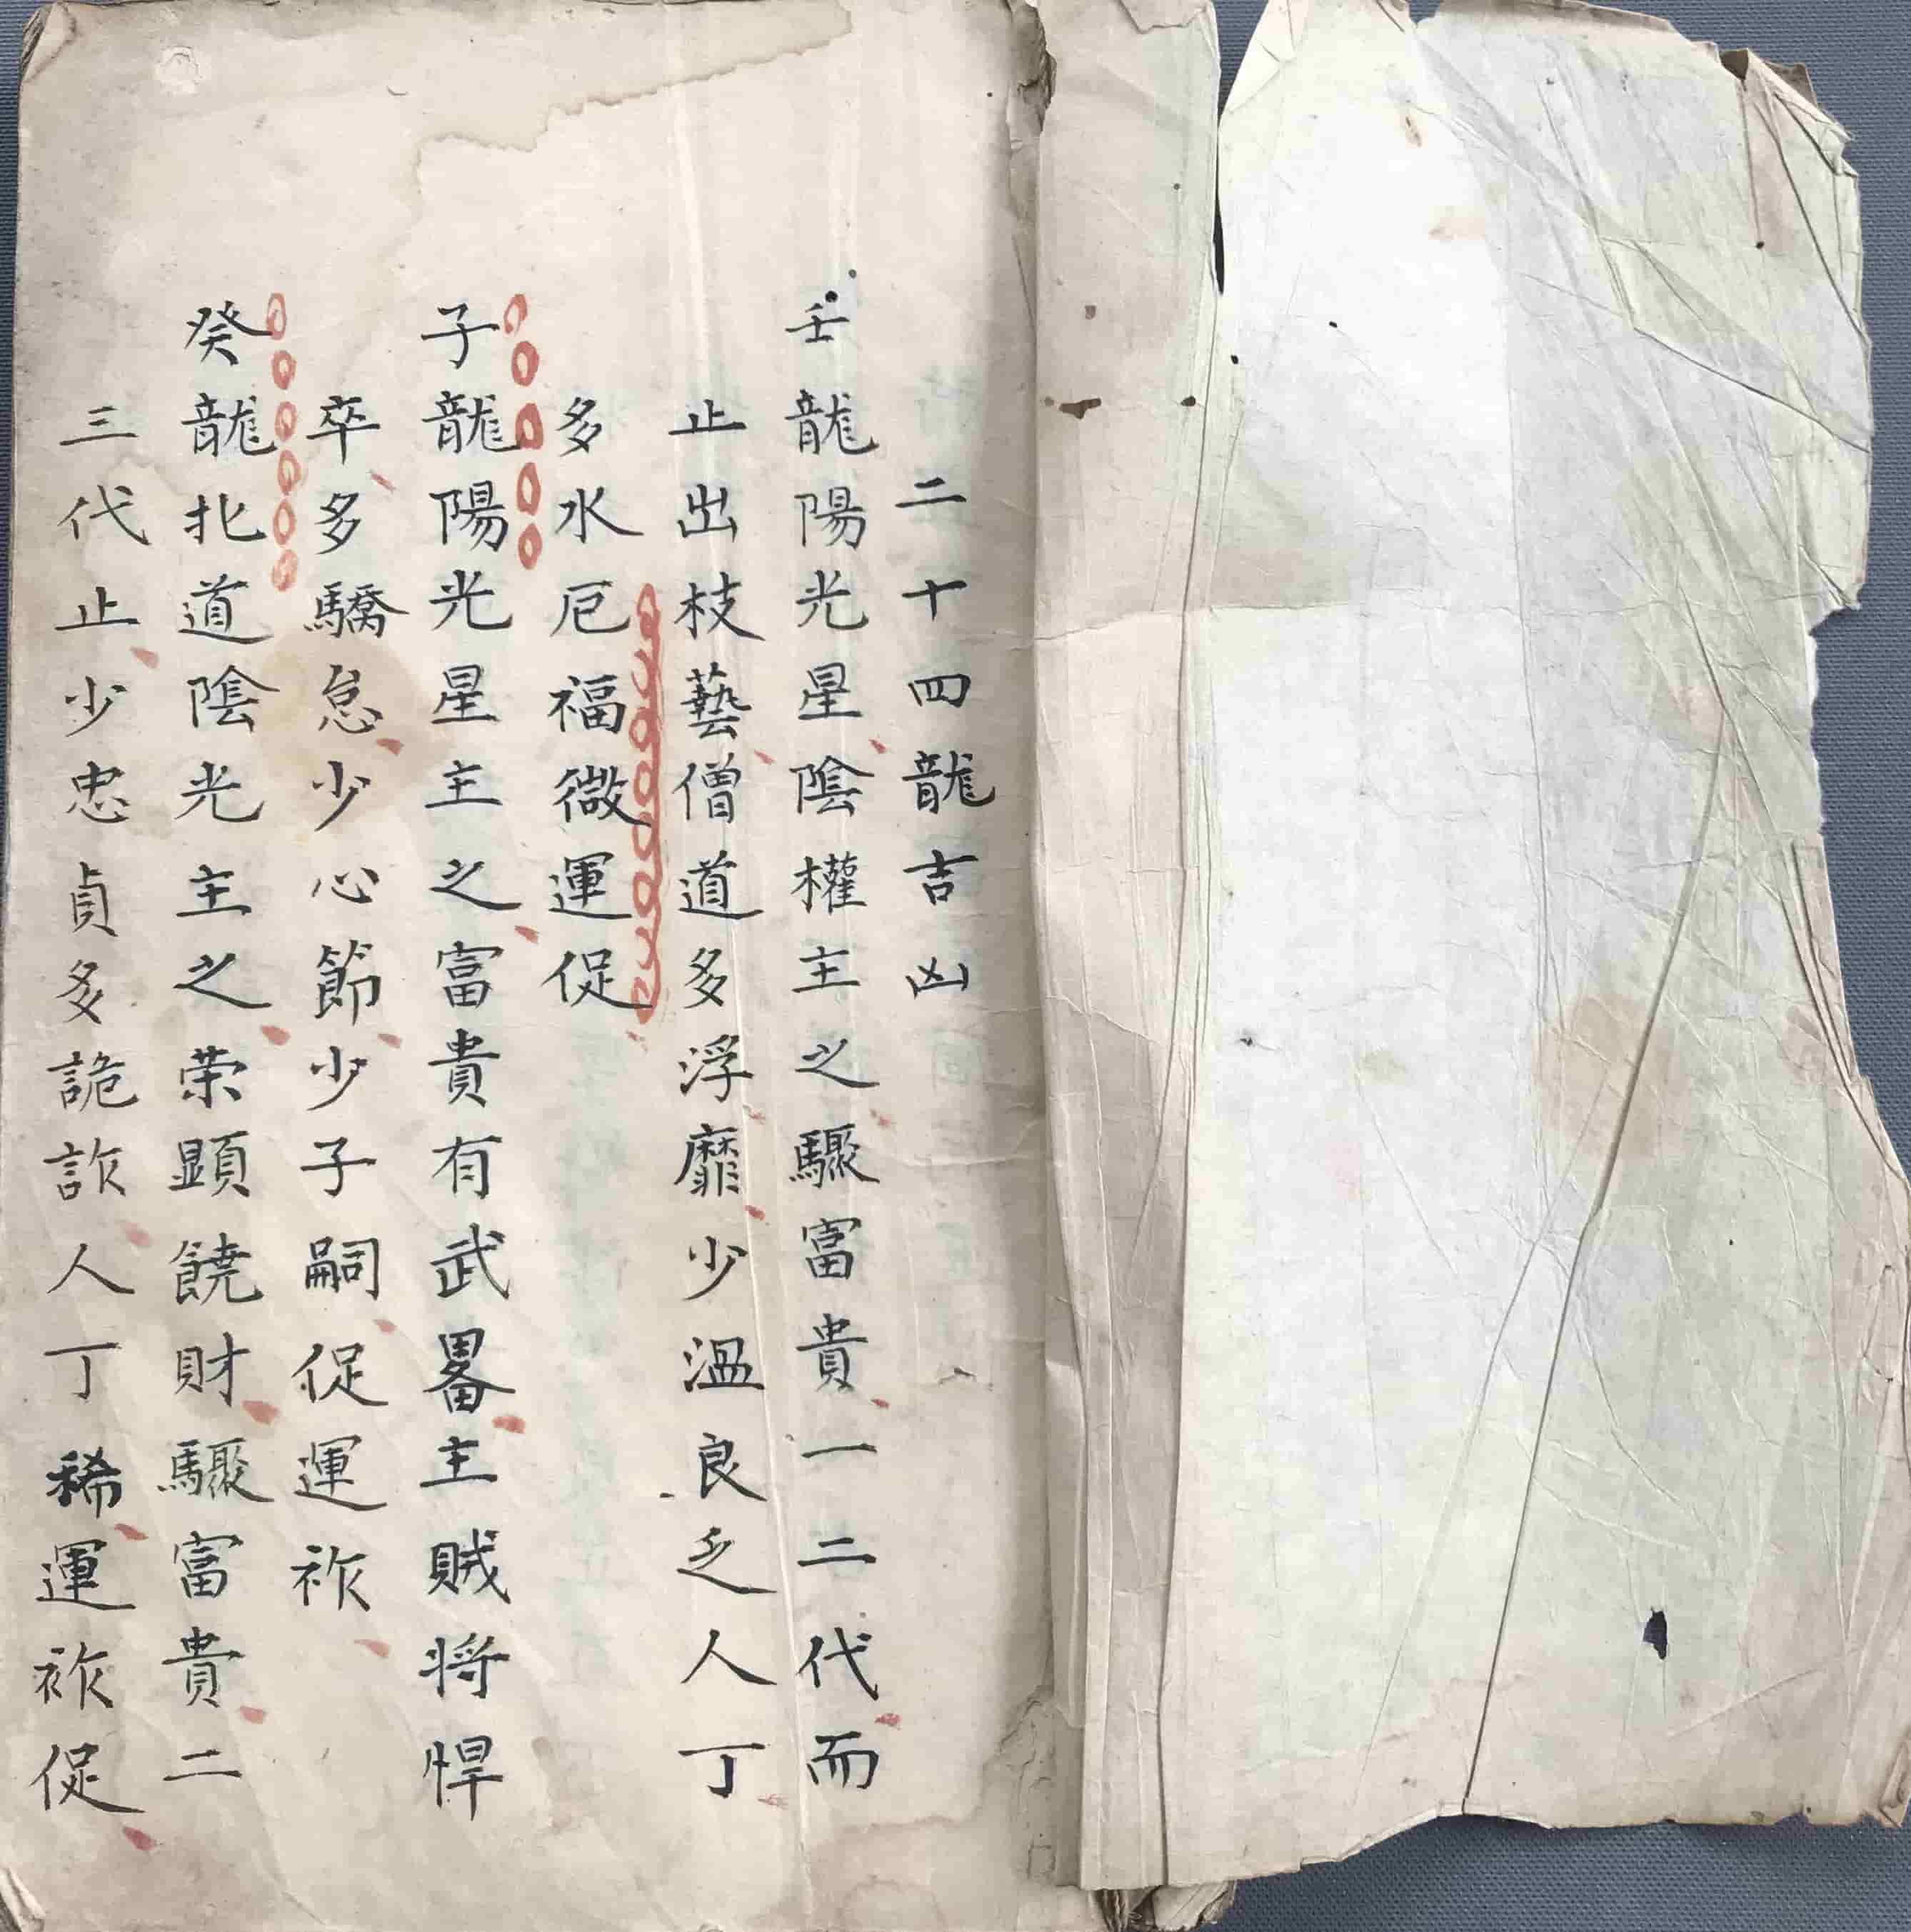 二十四龍吉凶
壬龍陽光星陰權主之驟富貴一二代而
止出枝藝僧道多浮靡少溫良乏人丁
多水厄福微運促
子龍陽光星主之富貴有武畧主賊将悍
卒多驕怠少心節少子嗣促運祚
癸龍北道陰光主之荣顕饒財驟富貴二
三代止少忠貞多詭詐人丁稀運祚促